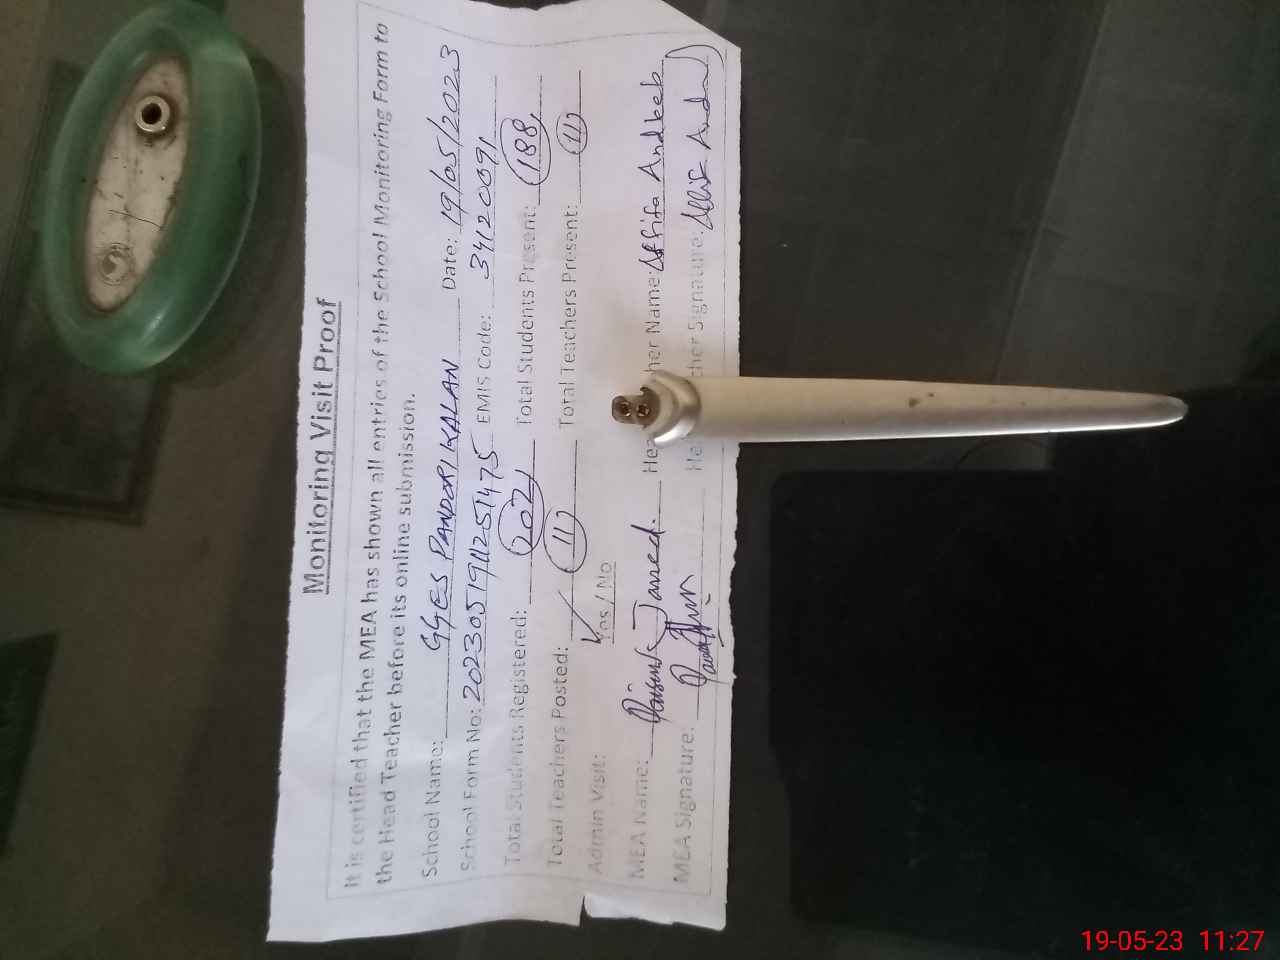 Monitoring Visit Proof
It is certified that the MEA has shown all entries of the School Monitoring Form to
the Head Teacher before its online submission.
School Name: GGES PANDORI KALAN Date: 19/05/2023
School Form No: 2023051911251475 EMIS Code: 34120091
Total Students Registered: 202 Total Students Present: 188
Total Teachers Posted: 11 Total Teachers Present: 11
Admin Visit: Yes / No
MEA Name: Hea her Name:
MEA Signature: He cher Signature:
19-05-23 11:27